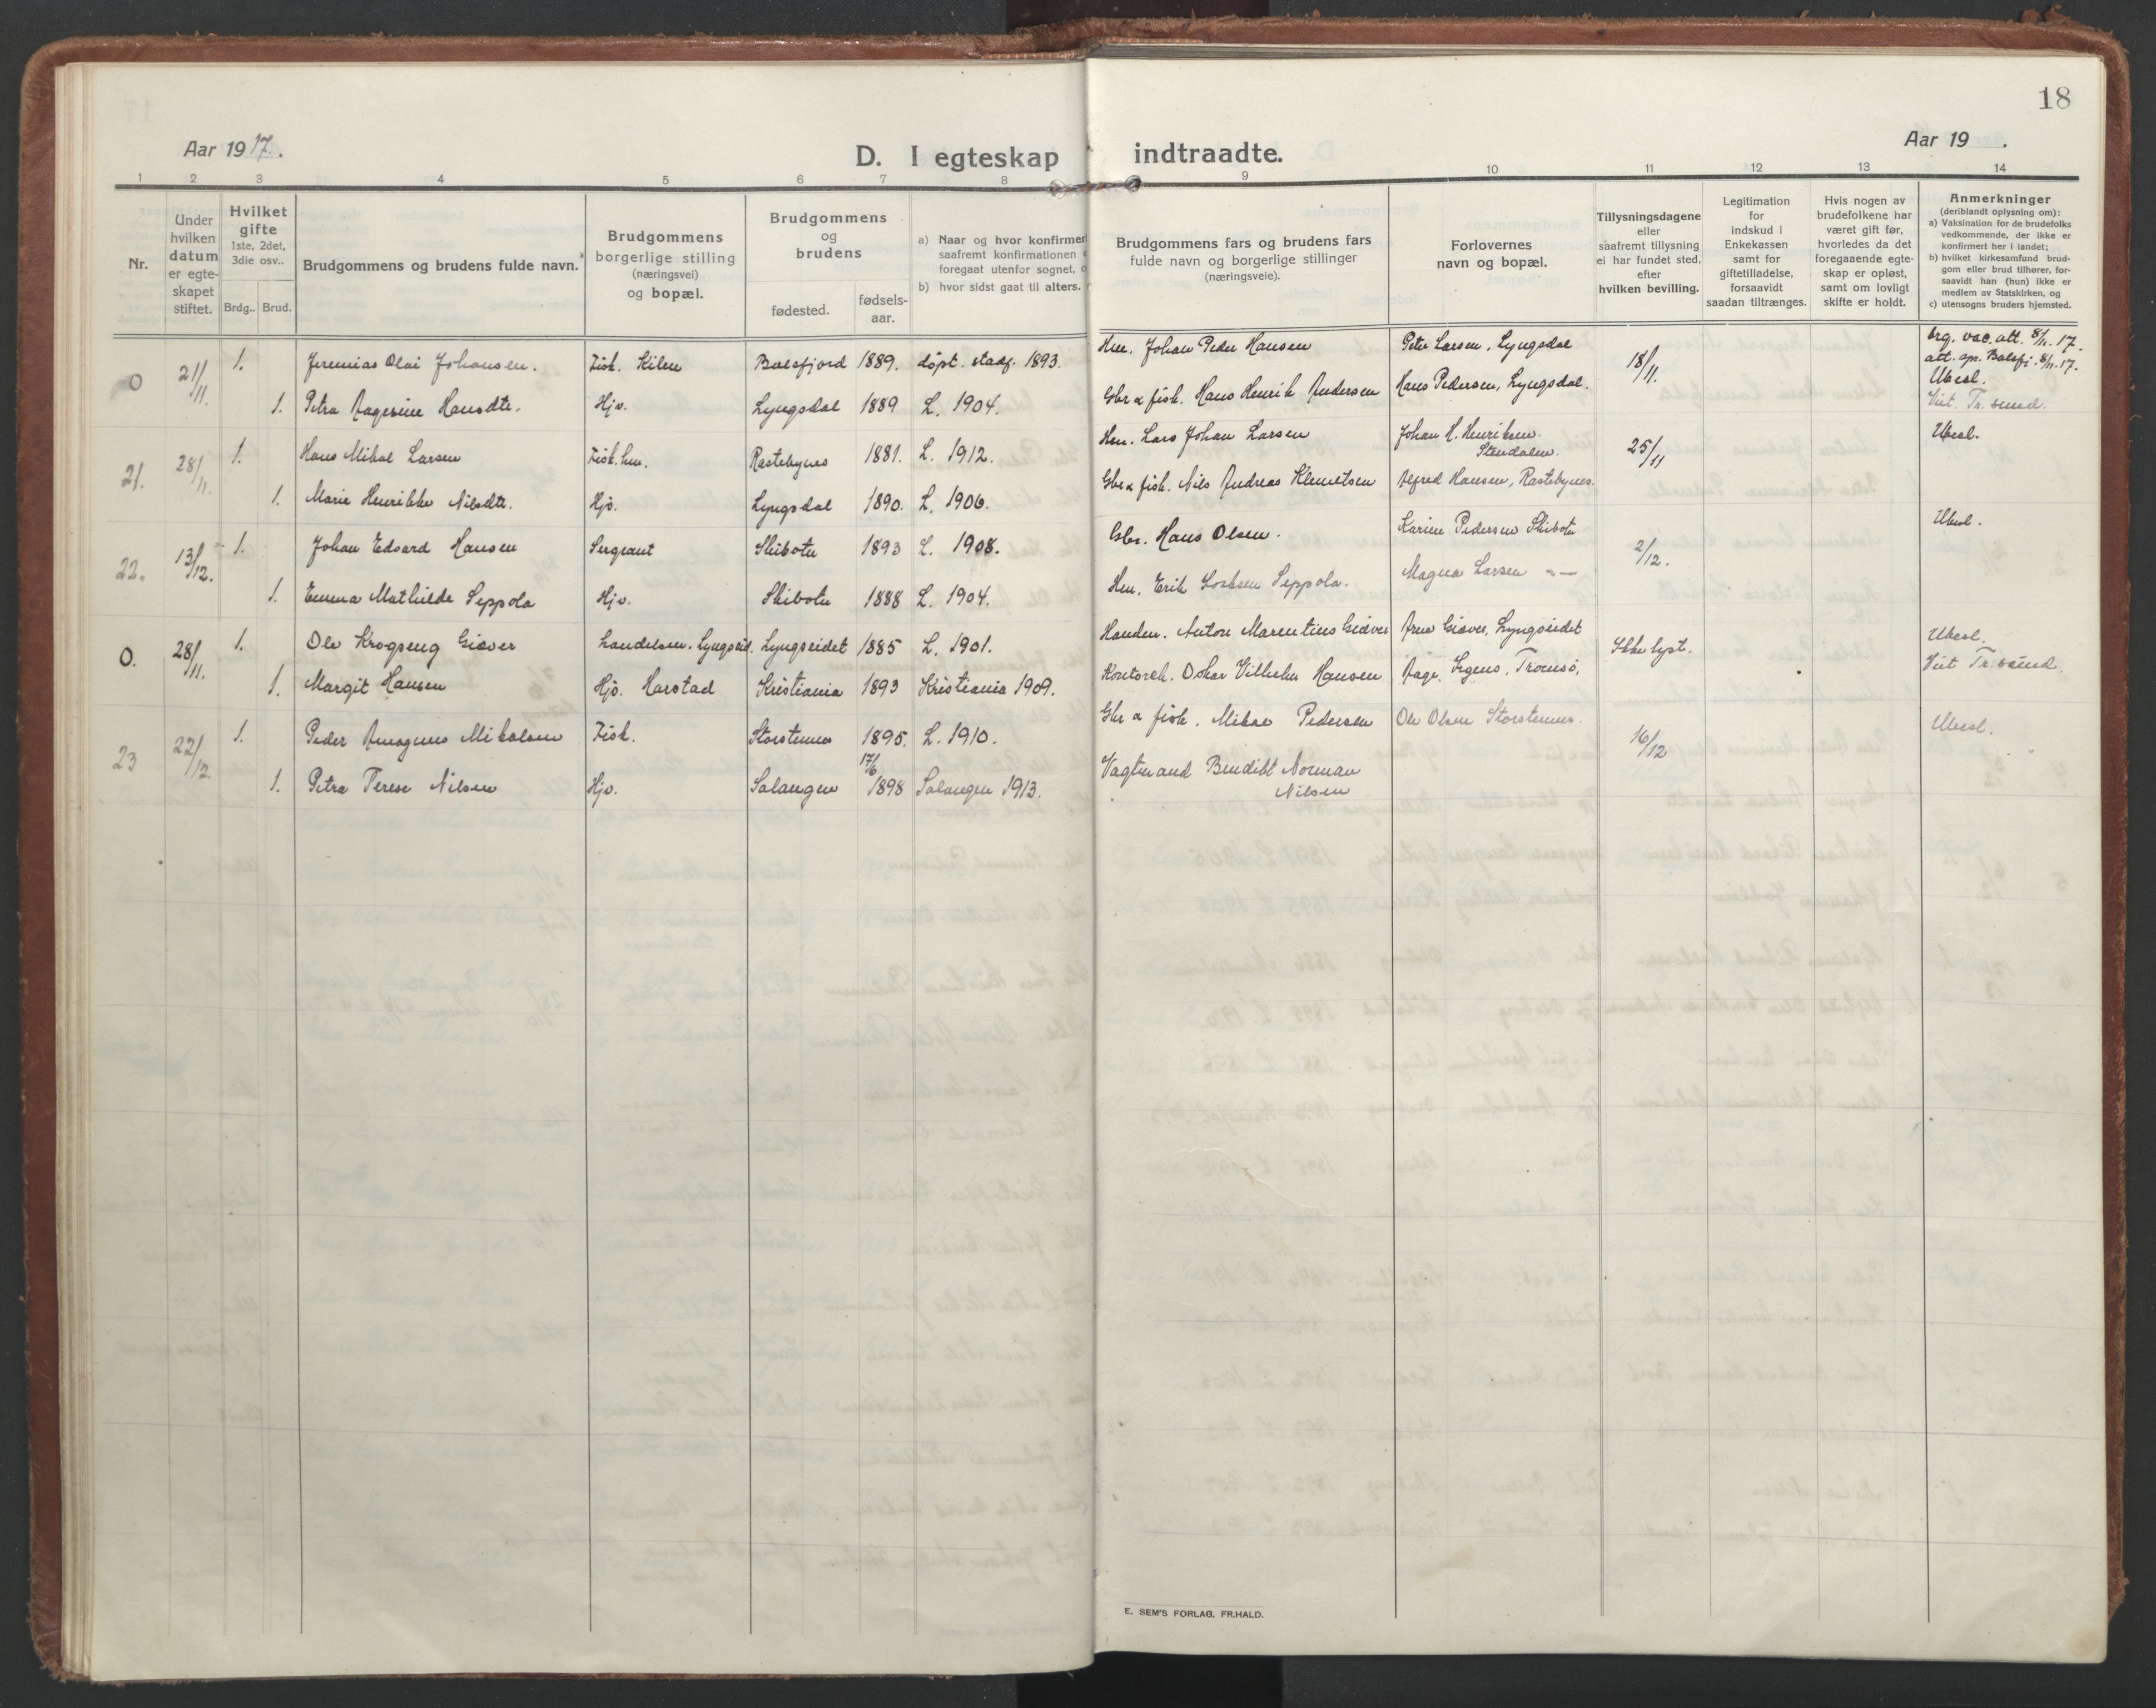 18
Aar 1917.
D. I egteskap indtraadte.
Aar 19 .
1 2 3 4 5 6 7 8 9 10 11 12 13 14
Nr.
Under
hvilken
datum
er egte-
skapet
stiftet.
Hvilket
gifte
1ste, 2det,
3die osv..
Brdg.. Brud.
Brudgommens og brudens fulde navn.
Brudgommens
borgerlige stilling
(næringsvei)
og bopæl.
Brudgommens
og
brudens
fødested.
fødsels-
aar.
a) Naar og hvor konfirmert
saafremt konfirmationen
foregaat utenfor sognet,
b) hvor sidst gaat til alters.
Brudgommens fars og brudens fars
fulde navn og borgerlige stillinger
(næringsveie).
Forlovernes
navn og bopæl.
Tillysningsdagene
eller
saafremt tillysning
ei har fundet sted,
efter
hvilken bevilling.
Legitimation
for
indskud i
Enkekassen
samt for
giftetilladelse,
forsaavidt
saadan tiltrænges.
Hvis nogen av
brudefolkene har
været gift før,
hvorledes da det
foregaaende egte-
skap er opløst,
samt om lovligt
skifte er holdt.
Anmerkninger
(deriblandt oplysning om):
a) Vaksination for de brudefolks
vedkommende, der ikke er
konfirmert her i landet;
b) hvilket kirkesamfund brud-
gom eller brud tilhører, for-
saavidt han (hun) ikke er
medlem av Statskirken, og
c) utensogns bruders hjemsted.
0 21/11. 1. Jeremias Olai Johansen. Fisk. Kilen Balsfjord 1889. döpt. stadf. 1893. Hm. Johan Peder Hansen Peter Larsen, Lyngsdal 18/11. vac. att. 8/11. 17.
att. Balsfj. 8/11. 17.
Ubesl.
1. Petra Aagesine Hansdtr. Hjv. Lyngsdal 1889 L. 1904. Gbr & fisk. Hans Henrik Andersen Hans Pedersen, Lyngsdal. Viet Tr. sund.
21. 28/11. 1. Hans Mikal Larsen Fisk. hm. Rastebynes 1881. L. 1912. Hm. Lars Johan Larsen Johan H. Henriksen.
Stendalen. 25/11 Ubesl.
1. Marie Henrikke Nilsdtr. Hjv. Lyngsdal 1890. L. 1906. Gbr & fisk. Nils Andreas Klemetsen Alfred Hansen, Rastebynes.
22. 13/12. 1. Johan Edvard Hansen Sergeant Skibotn 1893 L. 1908. Gbr. Hans Olsen. Karine Pedersen Skibotn 2/12. Ubesl.
1. Emma Mathilde Seppola Hjv. Skibotn 1888 L. 1904. Hm. Erik Seppola. Magna Larsen -"-
0. 28/11. 1. Ole Krogseng Giæver Handelsm. Lyngseid. Lyngseidet 1885 L. 1901. Handm. Anton Marentius Giæver Arne Giæver, Lyngseidet Ikke lyst. Ubesl.
1. Margit Hansen Hjv. Harstad Kristiania 1893 Kristiania 1909. Kontorch. Oskar Vilhelm Hansen Aage Tromsö. Viet Tr. sund.
23 22/12. 1. Peder Amagnus Mikalsen Fisk. Storstennes 1895. L. 1910. Gbr & fisk. Mikal Pedersen Ole Olsen Storstennes. 16/12 Ubesl.
1. Petra Terese Nilsen Hjv. Salangen 17/6 1898 Salangen 1913. Vagtmand Bendikt Norman
Nilsen
E. SEM'S FORLAG, FR.HALD.